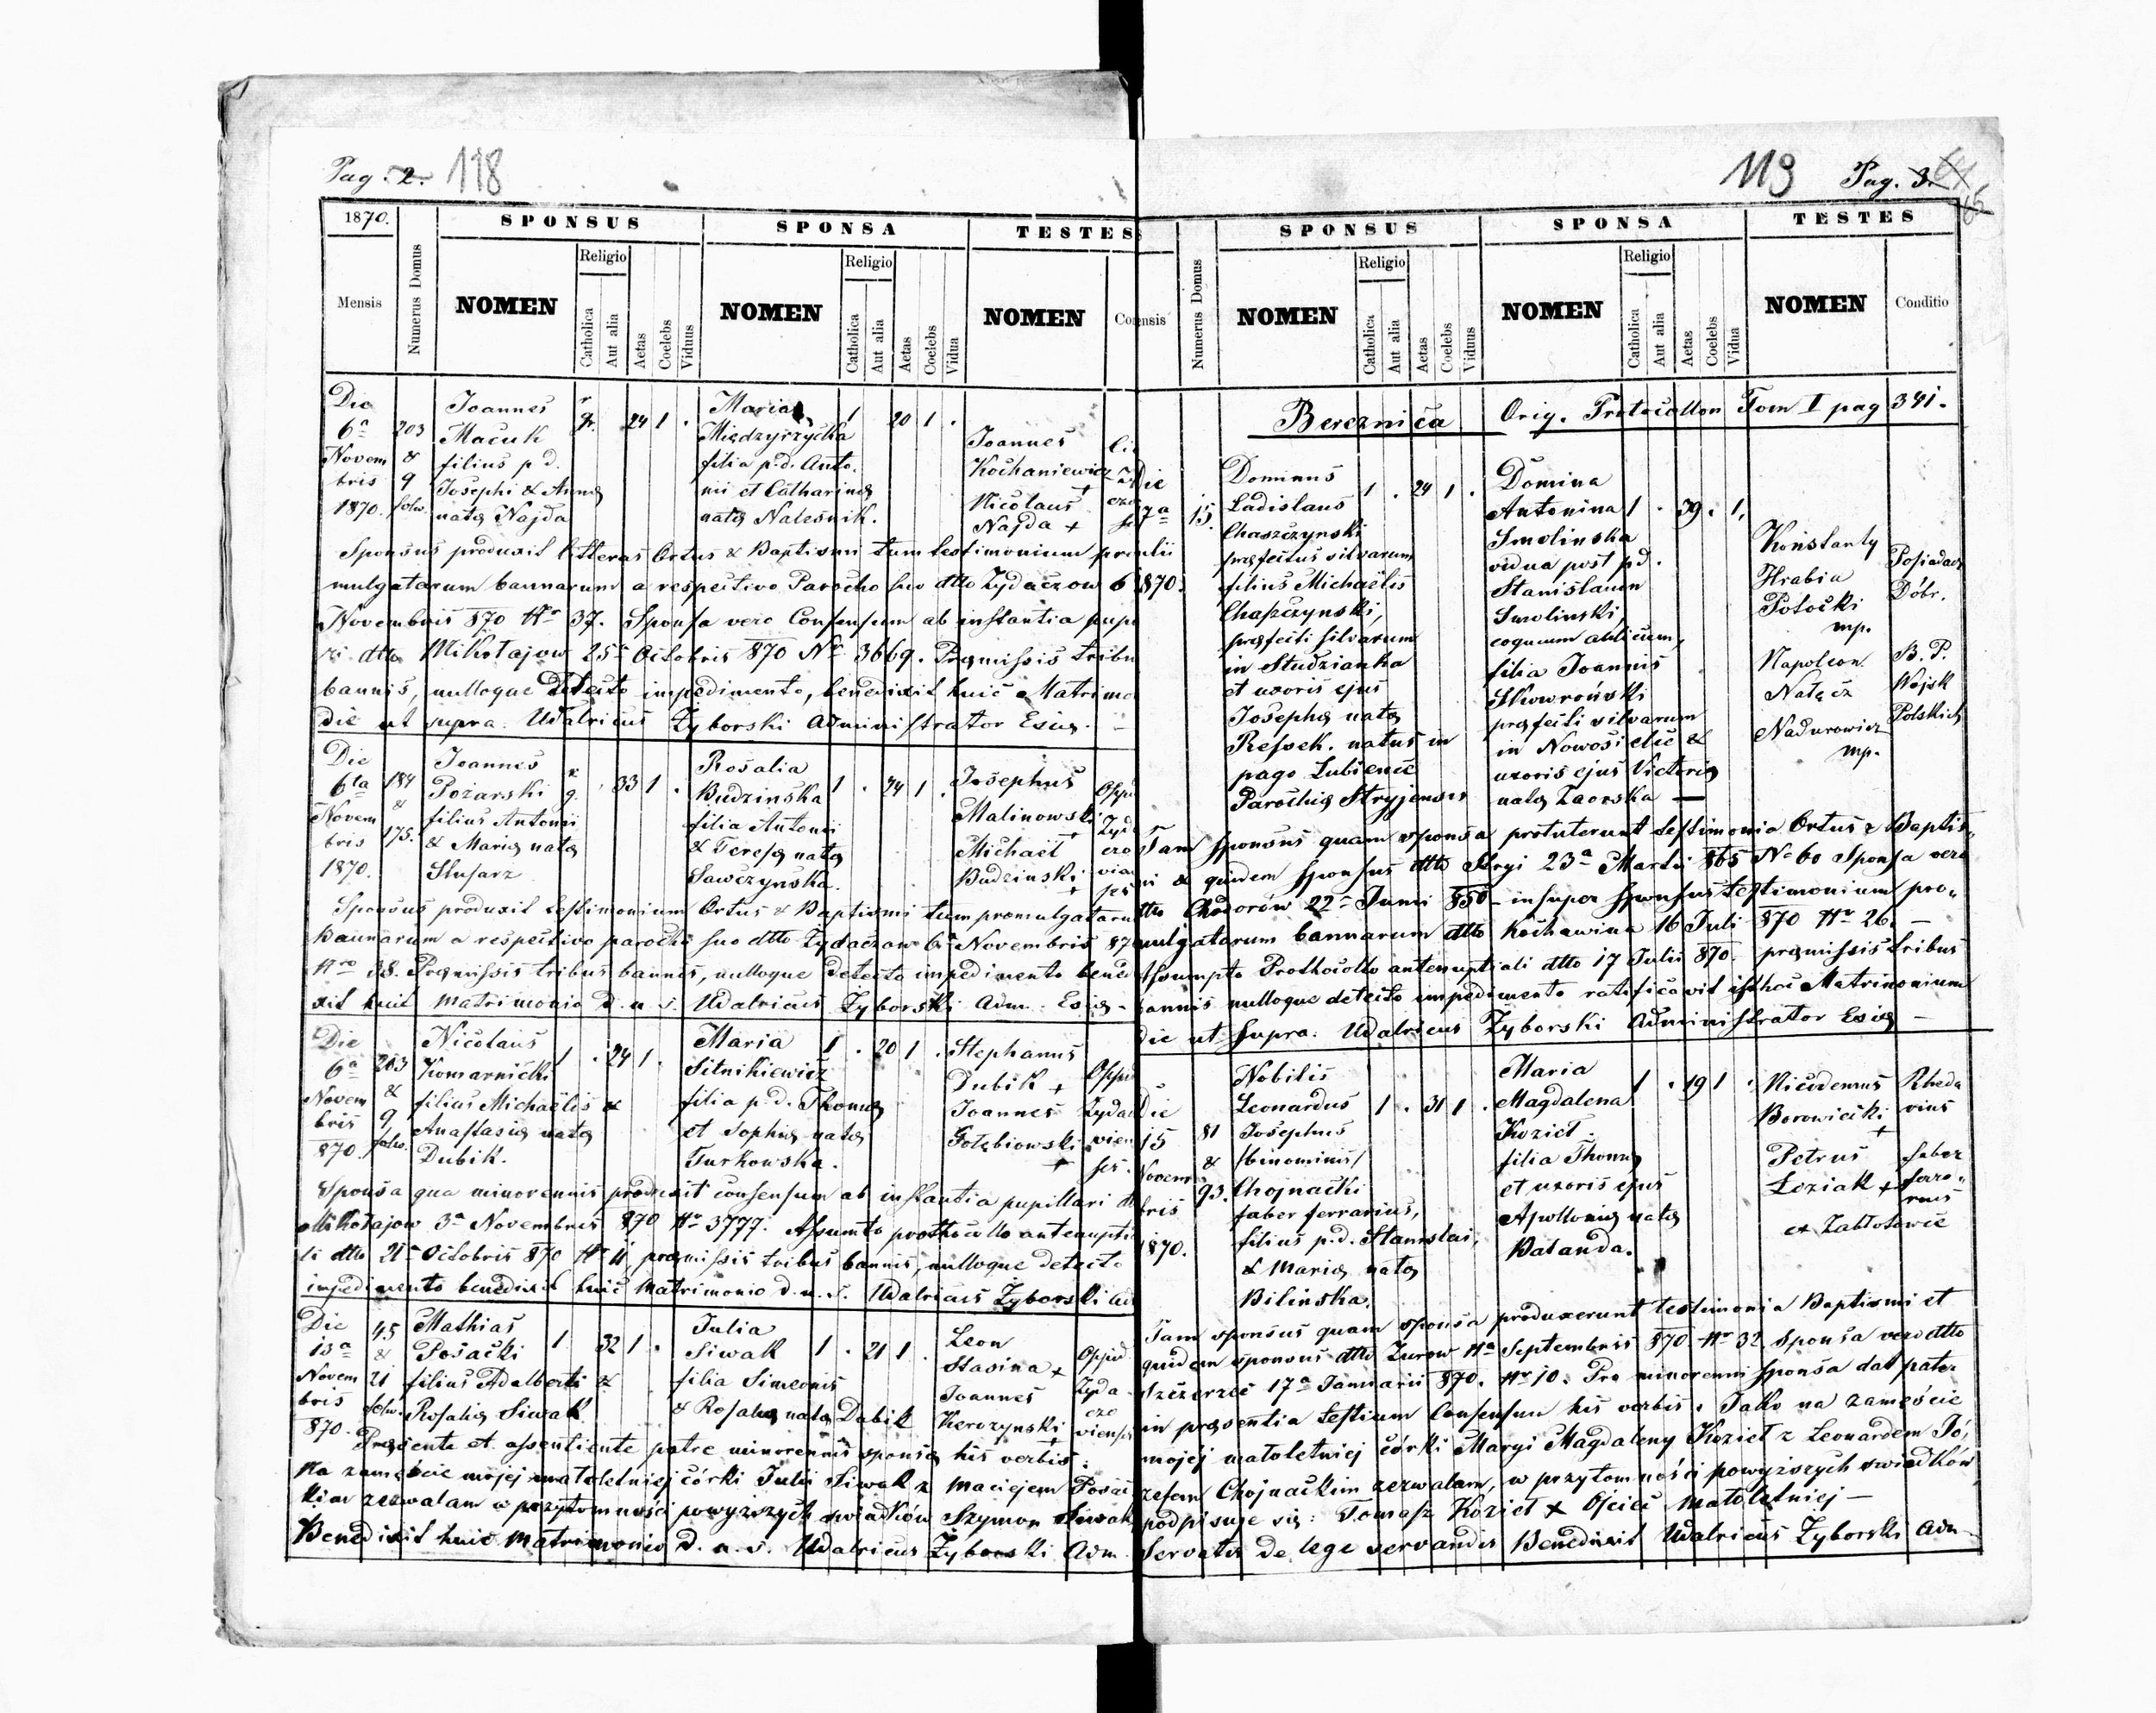 Pag. 2. 118
1870.
SPONSUS
SPONSA
TESTES
Mensis
Numerus Domus
NOMEN
Religio
Catholica
Aut alia
Aetas
Coelebs
Viduus
NOMEN
Religio
Catholica
Aut alia
Aetas
Coelebs
Vidua
NOMEN
Die
6a
Novem
bris
1870.
203
&
9
Joannes
Macuk
filius p.d.
Josephi & Annæ
natæ Najda
r
gr.
24 1 .
Maria
Międzyrzycka
filia p.d. Anto-
nii et Catharinæ
natæ Nalesnik.
1
20 1 .
Joannes
Kochaniewicz
+
Nicolaus
Najda +
Sponsus produxit litteras Ortus & Baptismi tum testimonium pro
mulgatarum bannarum a respectivo Parocho suo dtto Zydaczow 6
Novembris 870 Nr 37. Sponsa vero Consensum ab instantia pupi
ri dtto Mikołajow 25a Octobris 870 No 3669. Præmissis tribu
bannis, nulloque detecto impedimento, benedixit huic Matrimo
die ut supra. Udalricus Zyborski Administrator Ecciæ. —
Die
6ta
Novem
bris
1870.
184
&
175.
Joannes
Pożarski
filius Antonii
& Mariæ natæ
Slusarz
r
g.
. 33 1 .
Rosalia
Budzinska
filia Antonii
& Teresæ natæ
Sawczyńska.
1 . 24 1 .
Josephus
Malinowski
+
Michael
Budzinski
+
Sponsus produxit testimonium Ortus & Baptismi tum promulgataru
Bannarum a respectivo parocho suo dtto Zydaczow 6a Novembris 87
Nro 38. Præmissis tribus bannis, nulloque detecto impedimento bene
xit huic matrimonio d.u.s. Udalricus Zyborski Adm. Ecciæ -
Die
6a
Novem
bris
870.
203
&
9
Nicolaus
Komarnicki
filius Michaëlis &
Anastasiæ natæ
Dubik.
1 . 24 1 .
Maria
Sitnikiewicz
filia p.d. Thomæ
et Sophiæ natæ
Turkowska.
1 . 20 1 .
Stephanus
Dubik +
Joannes
Gołębiowski
+
Sponsa qua minorennis produxit consensum ab instantia pupillari d
Mikołajow 3a Novembris 870 Nr 3777. Assumto prothocollo antenupti
li dtto 21a Octobris 870 Nr 11, præmissis tribus bannis, nulloque detecto
impedimento benedixit huic Matrimonio d.u.s. Udalricus Zyborski Ad
Die
13a
Novem
bris
870.
45
&
21
Mathias
Posacki
filius Adalberti &
Rosaliæ Siwak
1 32 1 .
Julia
Siwak
filia Simeonis
& Rosaliæ natæ Dubik
1 . 21 1 .
Leon
Stasina +
Joannes
Kerczynski
+
Oppid
Zyda
czo
viens
Præsente et assentiente patre minorennis sponsæ his verbis:
Na zamęście mojej małoletniej córki Julii Siwak z Maciejem Posac
kim zezwalam w przytomności powyższych swiadków Szymon Siwak
Benedixit huic Matrimonio d.u.s. Udalricus Zyborski Adm.
113 Pag. 3.
SPONSUS
SPONSA
TESTES
Numerus Domus
NOMEN
Religio
Catholica
Aut alia
Aetas
Coelebs
Viduus
NOMEN
Religio
Catholica
Aut alia
Aetas
Coelebs
Vidua
NOMEN
Conditio
Bereznica Orig. Protocollon Tom I pag 341.
Die
17a
Julii
870.
15.
Dominus
Ladislaus
Chaszczynski
præfectus silvarum
filius Michaëlis
Chaszczynski,
præfecti silvarum
in Studzianka
et uxoris ejus
Josephæ natæ
Ressek. natus in
pago Lubience
Parochiæ Stryjensis
1 . 24 1 .
Domina
Antonina
Smolinska
vidua post p.d.
Stanislaum
Smolinski,
coquum aulicum,
filia Joannis
Skowroński
præfecti silvarum
in Nowosielce &
uxoris ejus Victoriæ
natæ Zaorska —
1 . 39 . 1.
Konstanty
Hrabia
Potocki
mp.
Napoleon
Nałęcz
Nadurowicz
mp.
Posiadacz
Dóbr.
B. P.
Wojsk
Polskich
Tam sponsus quam sponsa protulerunt testimonia Ortus & Baptis„
mi & quidem sponsus dtto Stryi 23a Martii 865 No 60 Sponsa vero
dtto Chodorów 22a Junii 850 - insuper sponsus testimonium pro„
mulgatarum bannarum dtto Kochawina 16 Juli 870 Nr 26. —
Assumpto Prothocollo antenuptiali dtto 17 Julii 870. præmissis tribus
bannis nulloque detecto impedimento ratificavit isthoc Matrimonium
die ut supra. Udalricus Zyborski Administrator Ecciæ —
Die
15
Novem
bris
1870.
81
&
93.
Nobilis
Leonardus
Josephus
/binominis/
Chojnacki
faber ferrarius,
filius p.d. Stanislai,
& Mariæ natæ
Bilinska.
1 . 31 1 .
Maria
Magdalena
Kozieł.
filia Thomæ
et uxoris ejus
Apolloniæ natæ
Bałanda.
1 . 19 1 .
Nicodemus
Borowiecki
+
Petrus
Leziak +
Rheda
rius
faber
ferra„
rius
ex Zabłotowce
Tam sponsus quam sponsa produxerunt testimonia Baptismi et
quidem sponsus dtto Zurow 11a Septembris 870 Nr 32 Sponsa vero dtto
Szczerzec 17a Januarii 870. Nr 10. Pro minorenni sponsa dat pater
in præsentia testium Consensum his verbis. Jako na zamęście
mojéj małoletniej córki Maryi Magdaleny Kozieł z Leonardem Jó„
zefem Chojnackim zezwalam, w przytomności powyższych swiadków
podpisuje się: Tomasz Kozieł + Ojciec małoletniej —
Servatis de lege servandis Benedixit Udalricus Zyborski Adm